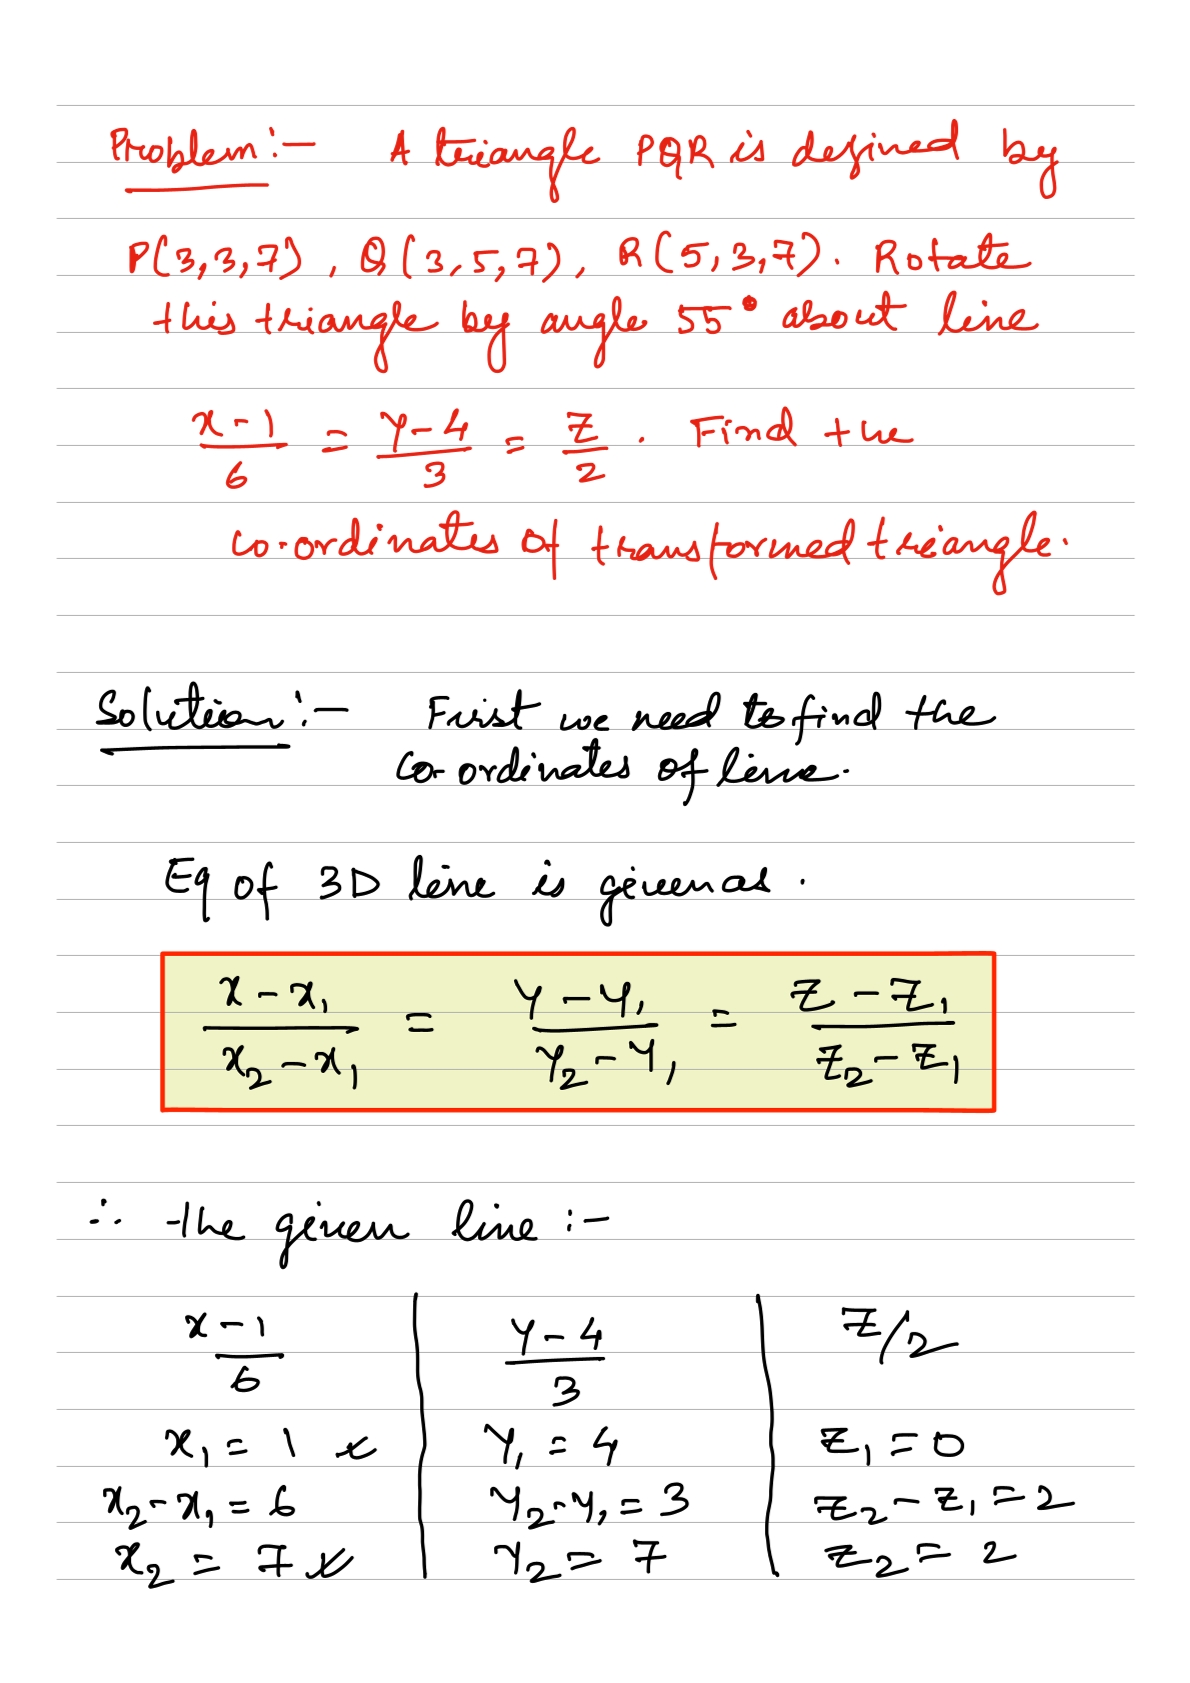 Problem :- A triangle PQR is defined by
P(3,3,7), Q(3,5,7), R(5,3,7). Rotate
this triangle by angle 55° about line
x-1/6 = y-4/3 = z/2 . Find the
co-ordinates of transformed triangle.
Solution :- First we need to find the
co-ordinates of line.
Eq of 3D line is given as .
x-x₁/x₂-x₁ = y-y₁/y₂-y₁ = z-z₁/z₂-z₁
∴ the given line :-
x-1/6 y-4/3 z/2
x₁ = 1 y₁ = 4 z₁ = 0
x₂-x₁ = 6 y₂-y₁ = 3 z₂-z₁ = 2
x₂ = 7 y₂ = 7 z₂ = 2